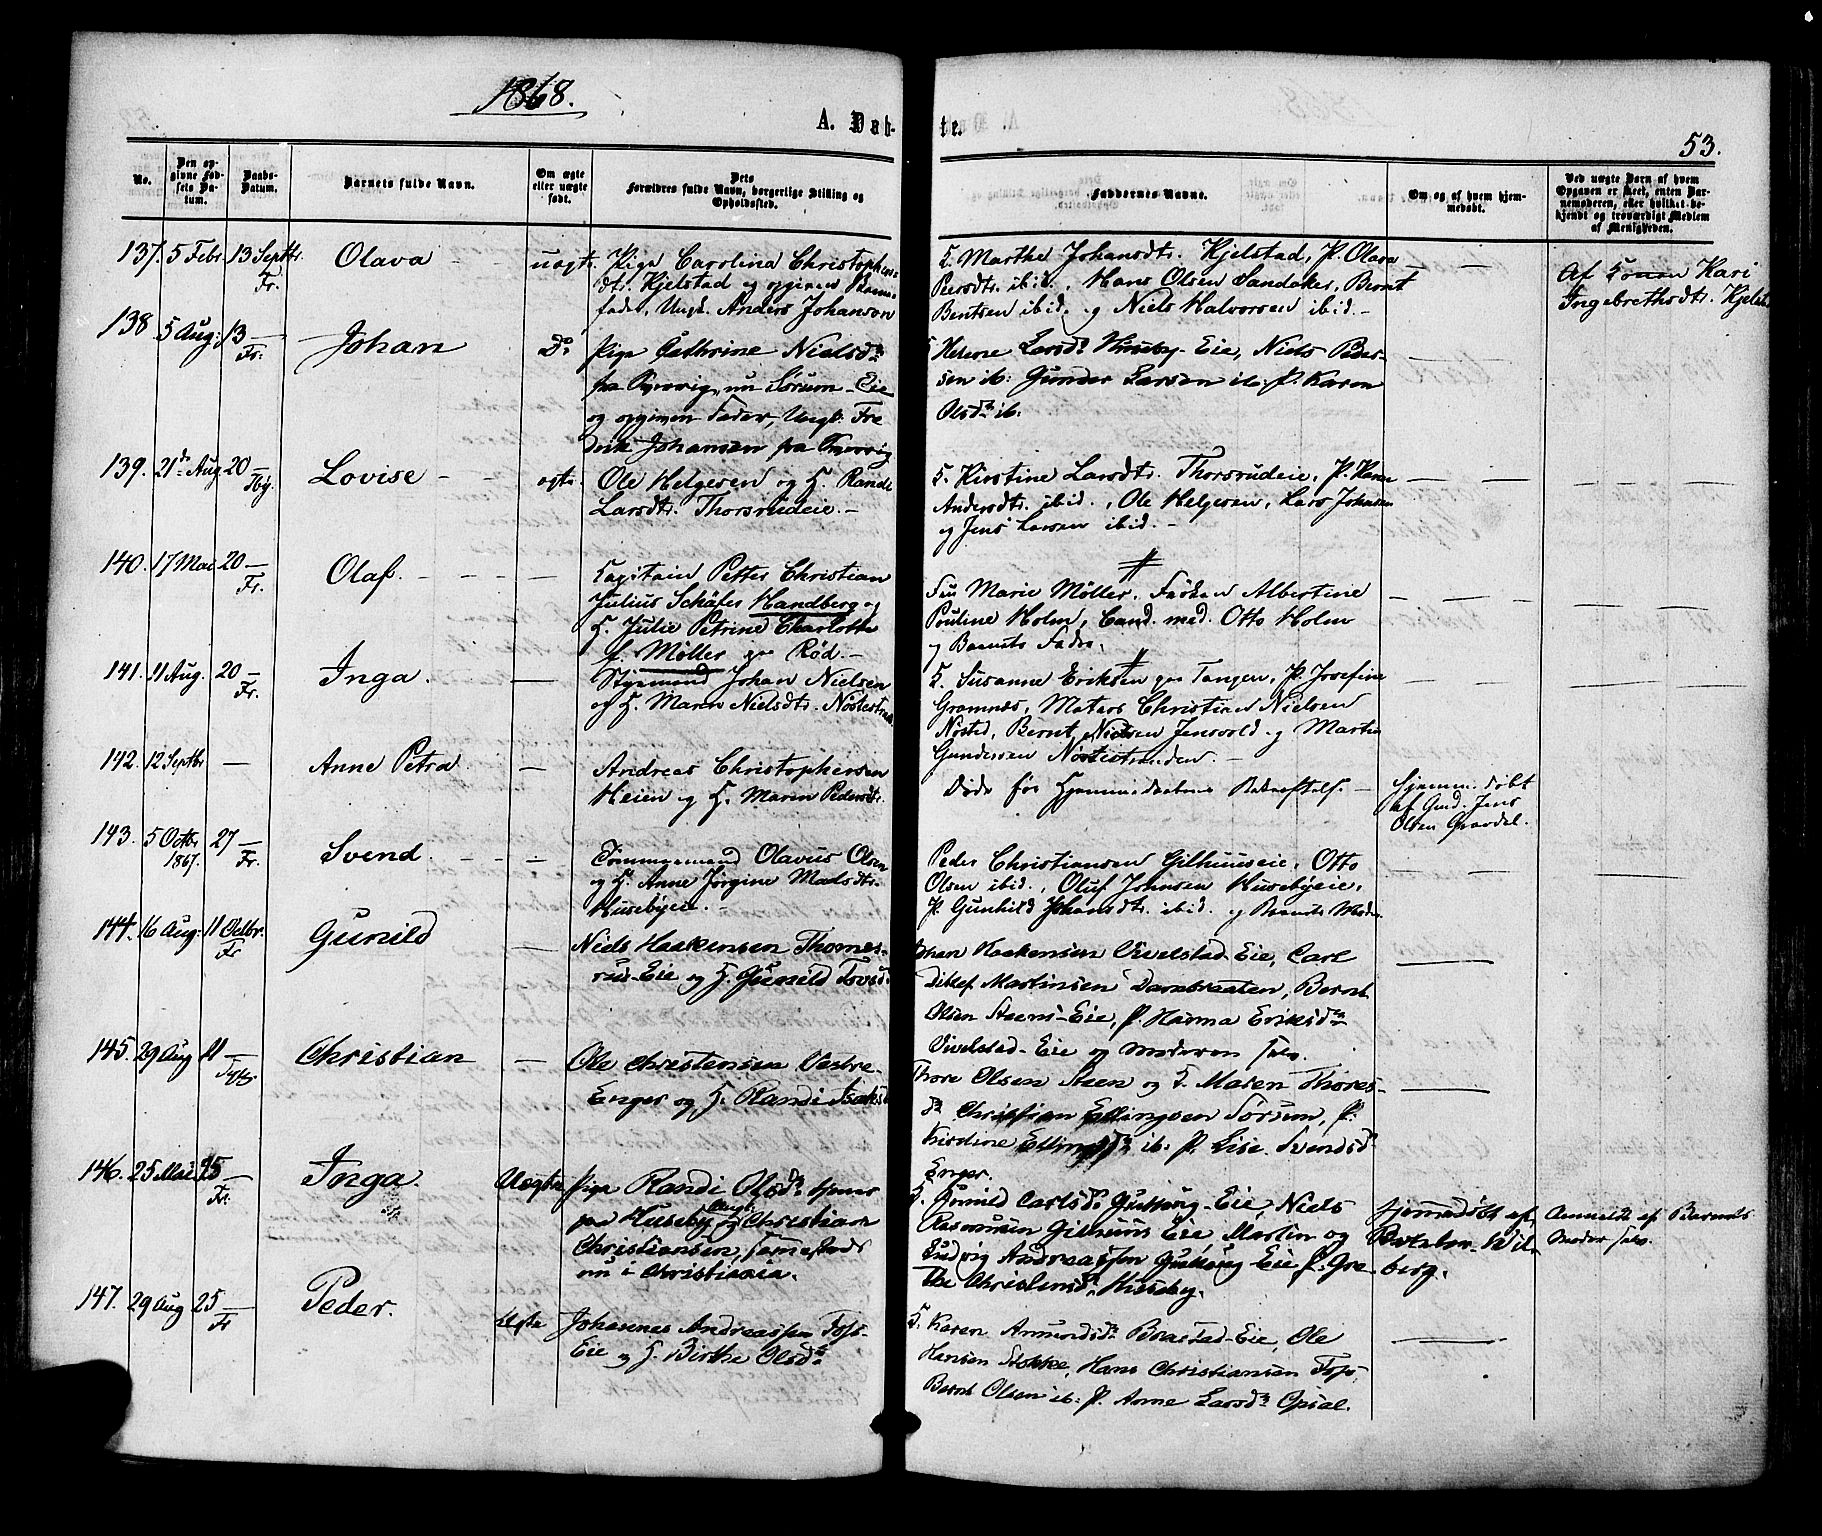 1868.
A. Døb-
te.
53.
No.
Den op-
givne Fød-
sels Da-
tum.
Daabs-
Datum.
Barnets fulde Navn.
Om ægte
eller uægte
født.
Dets
Forældres fulde Navn, borgerlige Stilling og
Opholdssted.
Faddernes Navne.
Om og af hvem hjem-
medøbt.
Ved uægte Barn af hvem
Opgaven er skeet, enten Bar-
nemoderen, eller hvilket be-
kjendt og troværdigt Medlem
af Menigheden.
137. 5 Febr. 13 Septbr. Fr.
Olava
uægte.
Pige Carolina Christophers-
dtr. Kjelstad og opgiven Barne-
fader, Ungk. Anders Johanson
K. Marthe Johansdtr. Kjelstad, P. Olava
Peersdtr. ibid., Hans Olsen Sandaker, Bernt
Bentsen ibid. og Niels Halvorsen ibid.
Af Konen Kari
Ingebrethsdtr. Kjelst
138 5 Aug: 13 — Fr.
Johan
Do
Pige Cathrine Nielsdr
fra, nu Sørum-Eie
og opgiven Fader, Ungk. Fre
derik Johansen fra
K. Helene Larsdr Huseby-Eie, Niels Peder-
sen ib: Gunder Larsen ib: P. Karen
Olsdr ib.
139. 21de Aug 20 —
Lovise
ægte.
Ole Helgesen og H. Randi
Larsdtr. Thorsrudeie.
K. Kirstine Larsdtr. Thorsrudeie, P. Karen
Andersdtr. ibid., Ole Helgesen, Lars Johansen
og Jens Larsen ibid.
140. 17 Mai 20 — Fr.
Olaf.
Kapitain Petter Christian
Julius Schäfer Handberg og
H. Julie Petrine Charlotte
f. Møller paa Rød.
Fru Marie Møller, Frøken Albertine
Pouline Holm, Cand. med. Otto Holm
og Barnets Fader.
141. 11 Aug. 20 — Fr.
Inga
Styrmand Johan Nielsen
og H. Maren Nielsdtr. Nøstestrand
K. Susanne Eriksen paa Tangen, P. Josefine
Gramnæs, Matros Christian Nielsen
Nøsted, Bernt Nielsen Jensvold og Martin
Gundersen Nøstestranden.
142. 12 Septbr —
Anne Petra
Andreas Christophersen
Heien og H. Maren Pedersdtr.
Døde før Hjemmedaabens Bekræftelse.
Hjemmedøbt
af Gmd. Jens
Olsen Gravdal.
143. 5 Octbr 1867. 27 — Fr.
Svend
Tømmermand Olavus Olsen
og H. Anne Jørgine Madsdtr.
Husebyeie.
Peder Christiansen Gilhuuseie, Otto
Olsen ibid., Oluf Johnsen Husebyeie,
P. Gunhild Johansdtr. ibid. og Barnets Moder.
144. 16 Aug: 11 Octbr. Fr
Gunild
Niels Haakensen Thomes-
rud-Eie og H. Gunild Tovsd.
Haakensen Vivelstad-Eie, Carl
Ditlef Martinsen, Bernt
Olsen Steens-Eie, P. Hanna Eriksdr
Vivelstad-Eie og Moderen selv.
145. 29 Aug 11 —
Christian
Ole Christensen Vestre-
Enger og H. Randi Isaksd
Thore Olsen Steen og K. Maren Thores-
dr Christian Ellingsen Sørum, P.
Kirstine Ellingsdr ib: P. Lise Svendsd
Enger.
146. 25 Mai 25 — Fr.
Inga
Uægte
Pige Randi Olsdr tjener
paa Huseby og Ungk. Christian
Christiansen, sammesteds
nu i Christiania.
K. Gunild Carlsdr Guldaug-Eie, Niels
Rasmusen Gilhuus Eie Martin og
Ludvig Andreassen Guldaug-Eie P. Gre-
the Christensd. Huseby.
Hjemmedøbt af
berg.
Anmeldt af Barnets
Moder selv.
147. 29 Aug 25 — Fr
Peder.
Ægte
Johannes Andreassen Foss-
Eie og H. Birthe Olsdr
K. Karen Amundsdr Braastad-Eie, Ole
Hansen Stokke, Hans Christiansen Foss,
Bernt Olsen ib: P. Anne Larsdr Opsal.